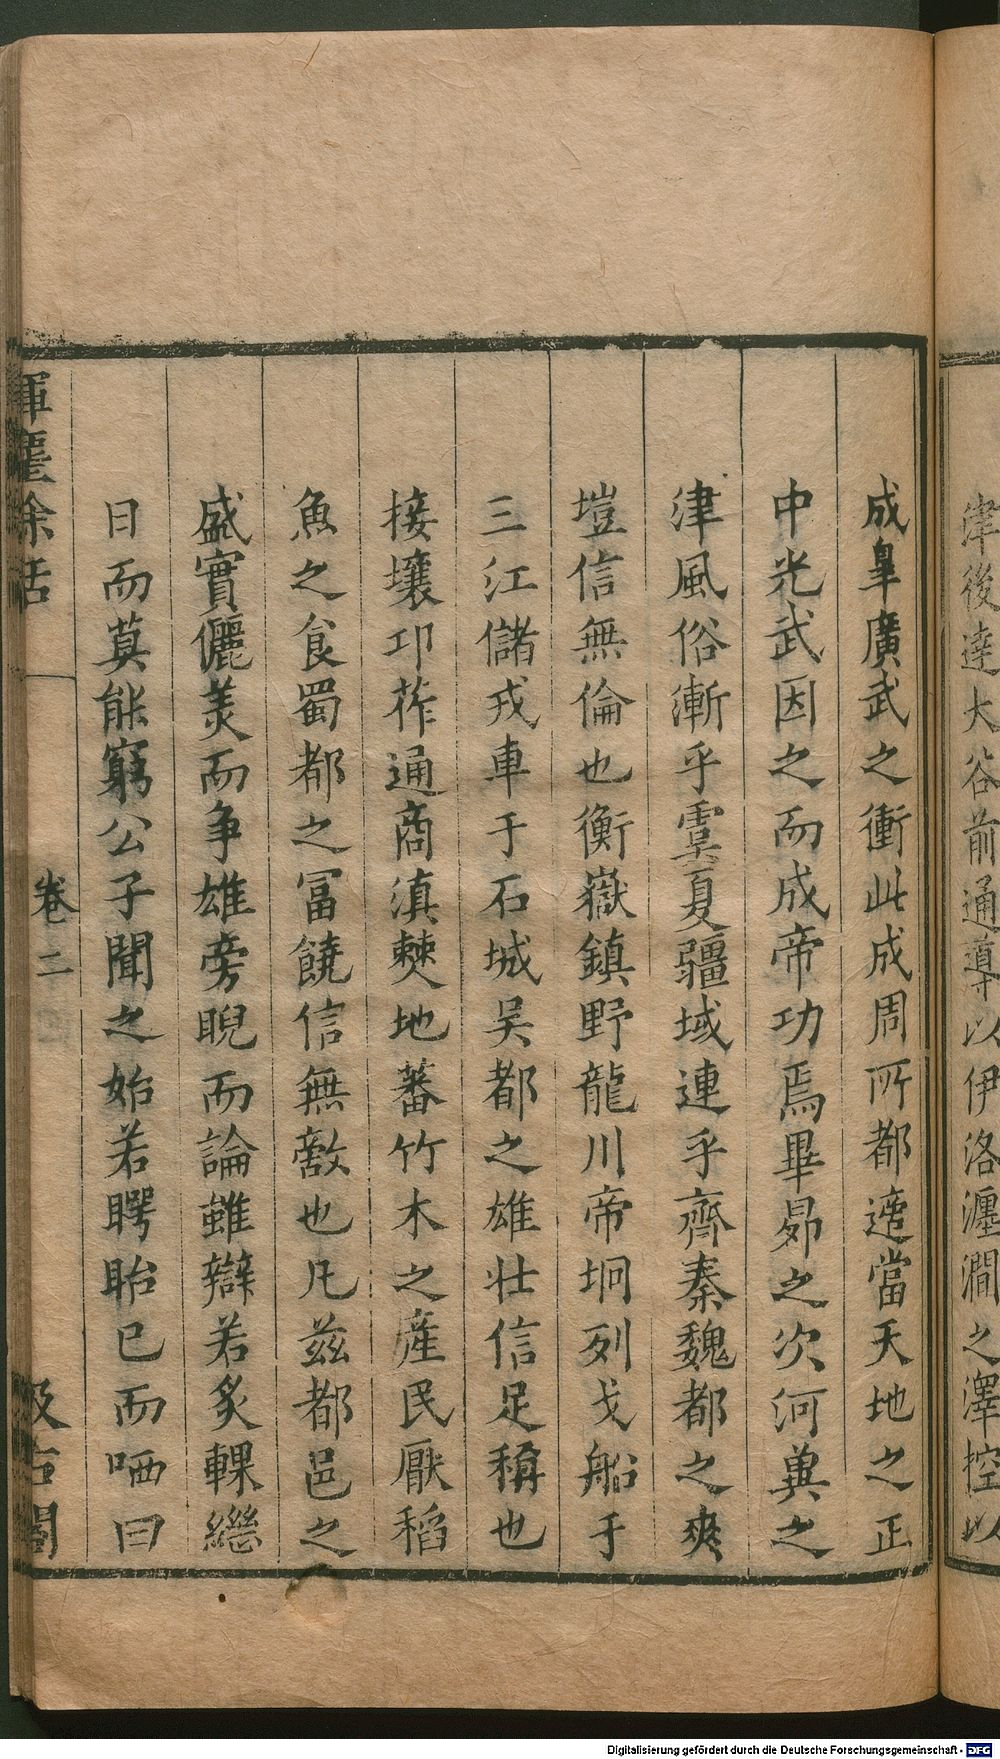 津後達大谷前通導以伊洛瀍澗之澤控以
成臯廣武之衝此成周所都適當天地之正
中光武因之而成帝功焉畢昴之次河冀之
津風俗漸乎虞夏疆域連乎齊秦魏都之爽
塏信無倫也衡嶽鎮野龍川帝坰列戈船于
三江儲戎車于石城吳都之雄壮信足稱也
接壤邛莋通商滇僰地蕃竹木之産民厭稻
魚之食蜀都之冨饒信無敵也凡兹都邑之
盛實儷羙而争雄旁睨而論雖辯若炙輠繼
日而莫能窮公子聞之始若瞤眙已而哂曰
揮麈余話
卷二
汲古閣
Digitalisierung gefördert durch die Deutsche Forschungsgemeinschaft - DFG